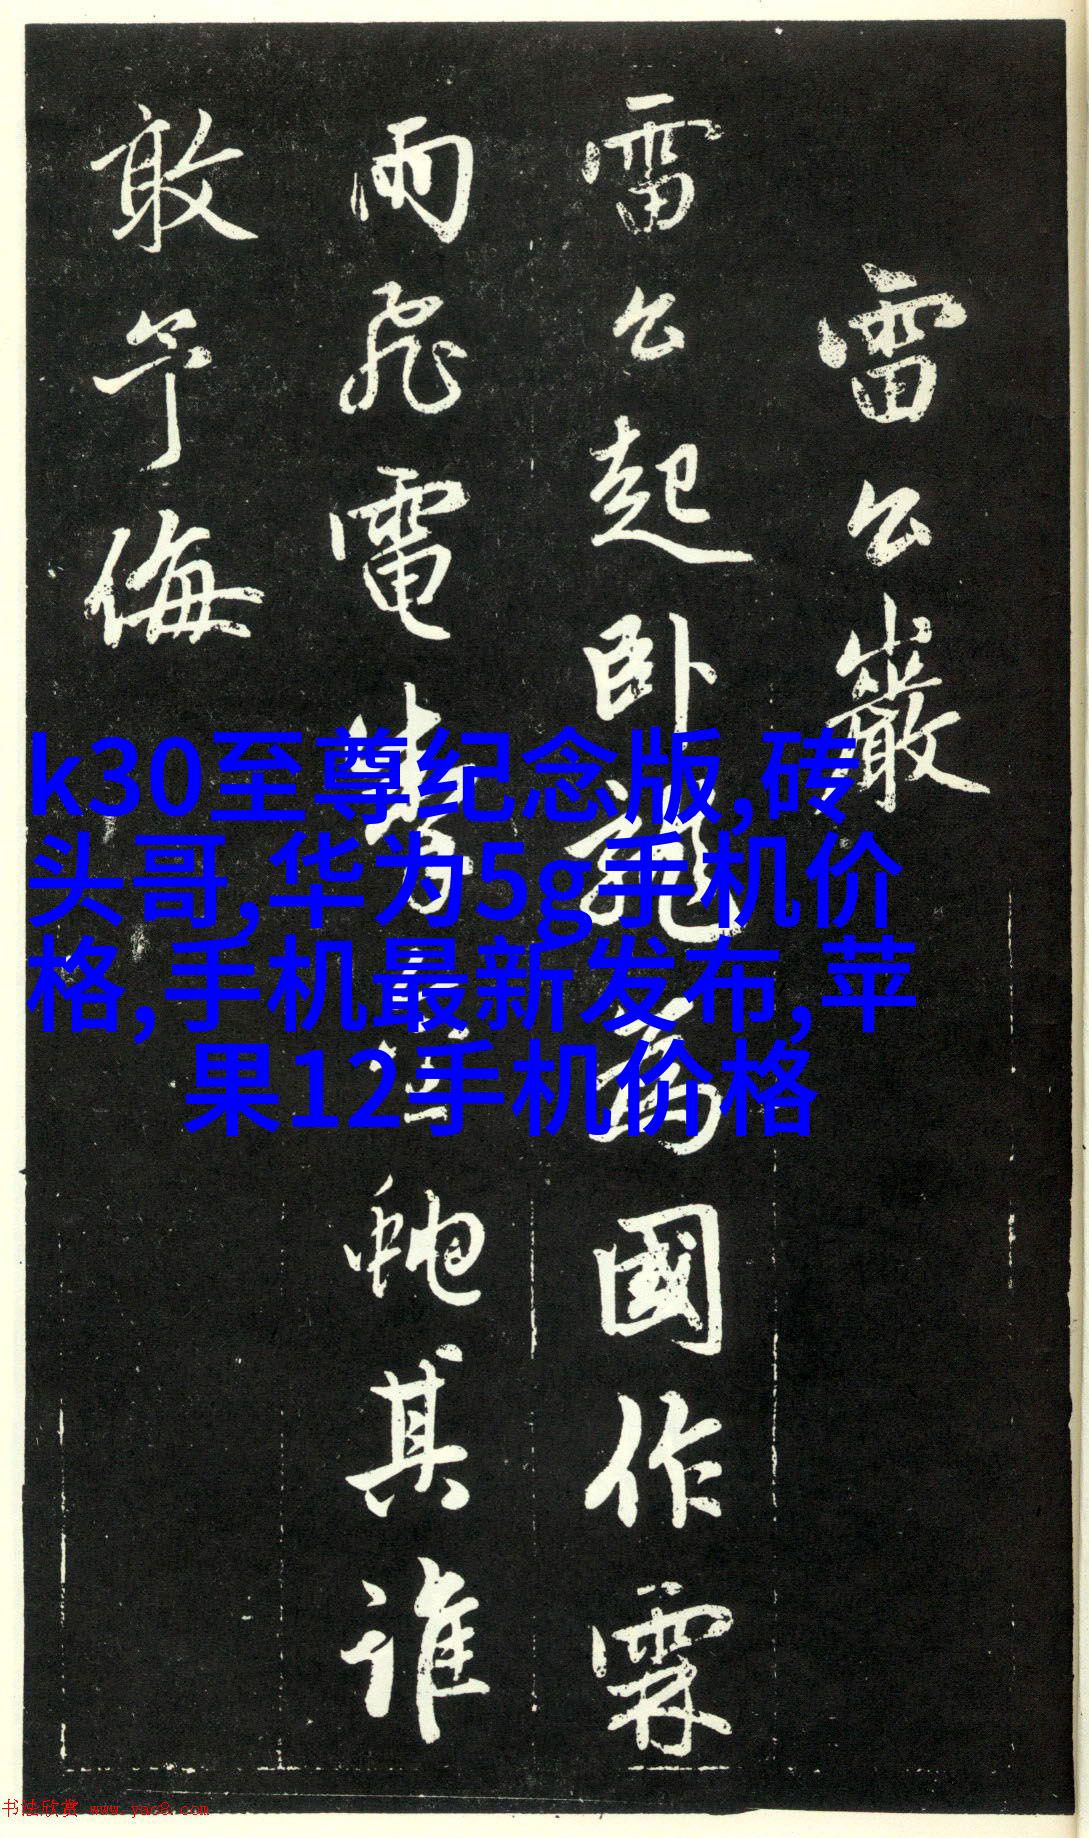 雷公巖
雷公起卧龍為國作霖
雨飛電掣金虵其誰
敢予侮
k30至尊纪念版,砖
头哥,华为5g手机价
格,手机最新发布,苹
果12手机价格
书法欣赏 www.yac8.com